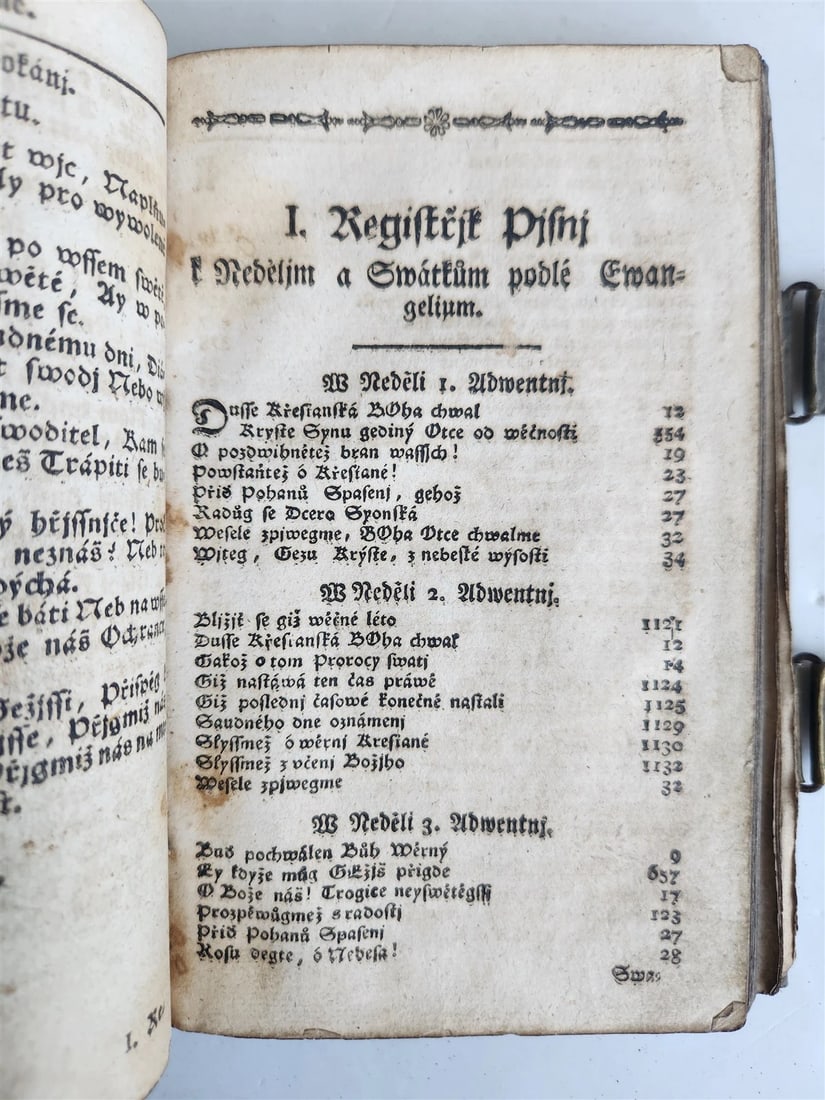 okánj.
tu.
t wjc, Naplň
ly pro wywolen
po wssem swět
wětě, Ay w p
sme se.
udnému dni,
t swodj Nebo
ne.
woditel, Kam
Trápiti se,
ý hřjssnjče!
neznáš! Neb
dýchá.
e báti Neb na
že náš Ochran
Gežjssi, Přispěg
Přjgmiž
řjgmiž nás na
I.
I. Registřjk Pjsnj
k Neděljm a Swátkům podlé Ewan-
gelium.
W Neděli 1. Adwentnj.
Dusse Křestanská BOha chwal 12
Kryste Synu gediný Otce od wěčnosti 354
O pozdwihnětež bran wassich! 19
Powstaňtež ó Křestané! 23
Přiď Pohanů Spasenj, gehož 27
Radůg se Dcero Syonská 27
Wesele zpjwegme, BOha Otce chwalme 32
Witeg, Gezu Kryste, z nebeské wýsosti 34
W Neděli 2. Adwentnj.
Bljžjť se giž wěčné léto 1121
Dusse Křestanská BOha chwal 12
Gakož o tom Prorocy swatj 14
Giž nastáwá ten čas práwě 1124
Giž poslednj časowé konečně nastali 1125
Saudného dne oznámenj 1129
Slyssmež ó wěrnj Krestané 1130
Slyssmež z včenj Božjho 1132
Wesele zpjwegme 32
W Neděli 3. Adwentnj.
Buď pochwálen Bůh Wěrný 9
Ey kdyže můg GEžjš přigde 657
O Bože náš! Trogice neyswětěgssj 17
Prozpěwůgmež s radostj 123
Přiď Pohanů Spasenj 27
Rosu degte, ó Nebesa! 28
Swa-